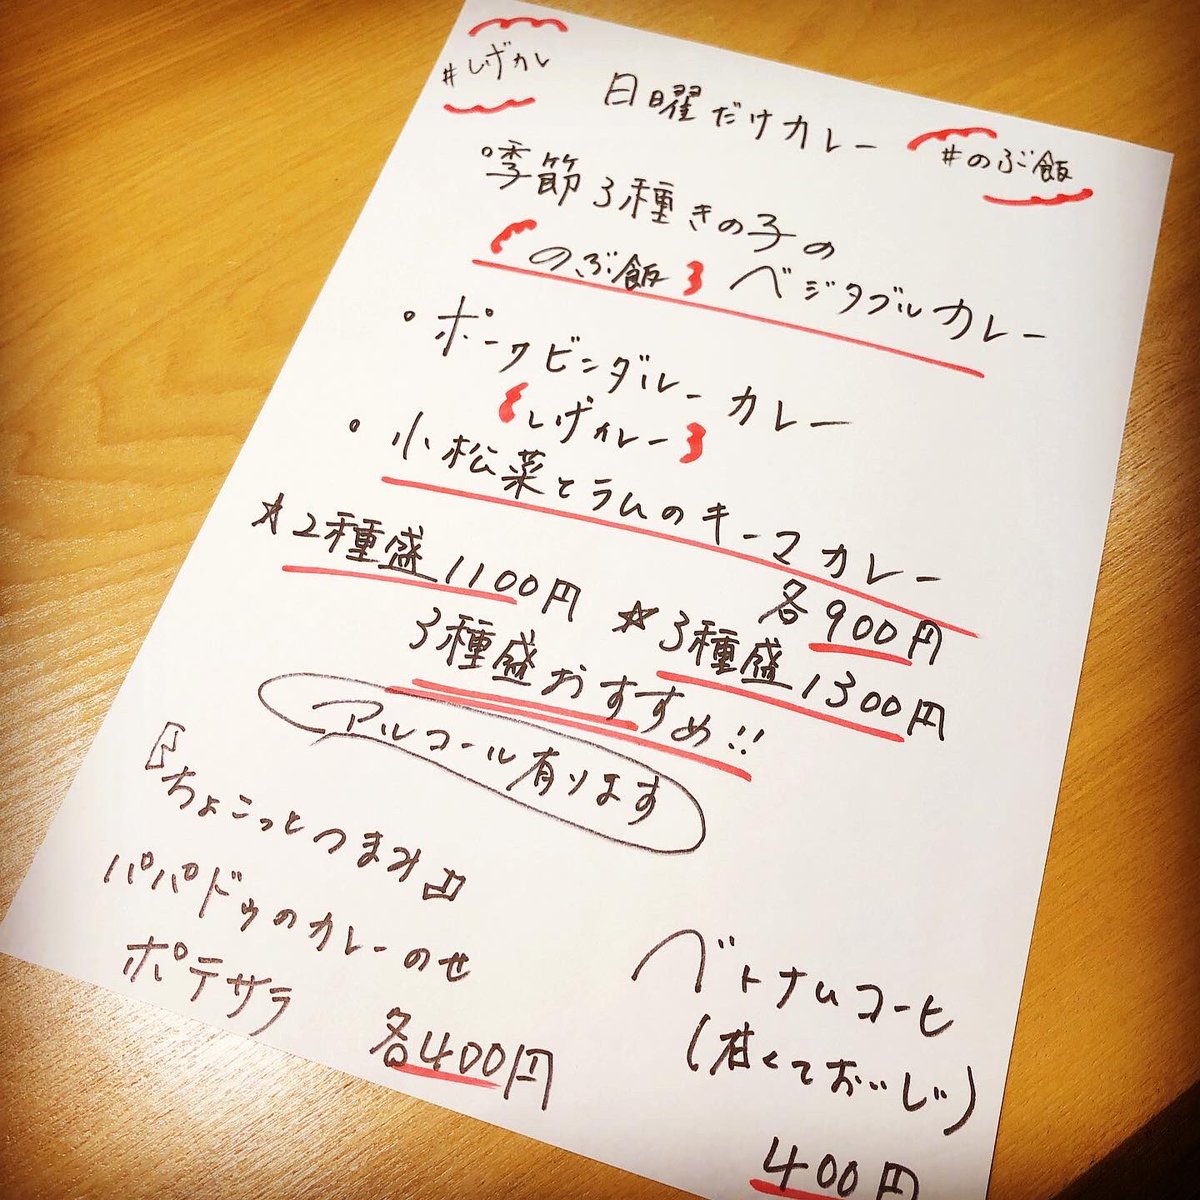 #しげカレ
日曜だけカレー
#のぶ飯
・季節3種きの子の
のぶ飯 ベジタブルカレー
・ポークビンダルーカレー
しげカレー
・小松菜とラムのキーマカレー
各900円
☆2種盛1100円
☆3種盛1300円
3種盛おすすめ!!
アルコール有ります
『ちょこっとつまみ』
パパドゥのカレーのせ
ポテサラ
各400円
ベトナムコーヒ
(甘くておいじ)
400円